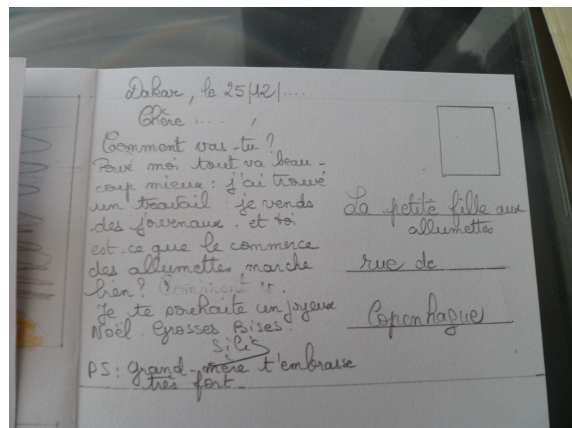 Dakar, le 25/12/....
Chère .... ,
Comment vas-tu ?
Pour moi tout va beau-
coup mieux : j'ai trouvé
un travail : je vends
des journaux. et toi
est-ce que le commerce
des allumettes marche
bien ?
Je te souhaite un joyeux
Noël. Grosses Bises.
PS : Grand-mère t'embrasse
très fort.
La petite fille aux
allumettes
rue de
Copenhague